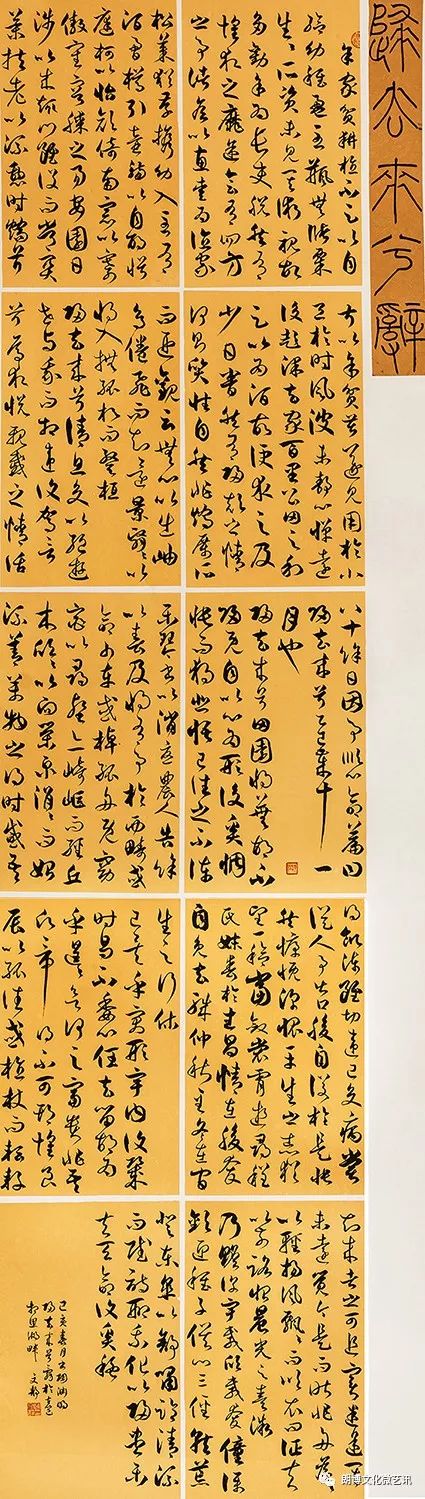 歸去來兮辭
余家貧耕植不足以自
給幼稚盈室缾無儲粟
生生所資未見其術親故
多勸余為長吏脫然有
懷求之靡途會有四方
之事諸侯以惠愛為德家
叔以余貧苦遂見用於小
邑於時風波未靜心憚遠
役彭澤去家百里公田之利
足以為酒故便求之及
少日眷然有歸歟之情
何則質性自然非矯厲所
八十餘日因事順心命篇曰
歸去來兮乙巳歲十一
月也
歸去來兮田園將蕪胡不
歸既自以心為形役奚惆
悵而獨悲悟已往之不諫
得飢凍雖切違己交病嘗
從人事皆口腹自役於是悵
然慷慨深愧平生之志猶
望一稔當斂裳宵逝尋程
氏妹喪於武昌情在駿奔
自免去職仲秋至冬在官
知來者之可追實迷途其
未遠覺今是而昨非舟遙遙
以輕颺風飄飄而吹衣問征夫
以前路恨晨光之熹微
乃瞻衡宇載欣載奔僮僕
歡迎稚子候門三徑就荒
松菊猶存攜幼入室有
酒盈樽引壺觴以自酌眄
庭柯以怡顏倚南窗以寄
傲審容膝之易安園日
涉以成趣門雖設而常關
策扶老以流憩時矯首
而遐觀雲無心以出岫
鳥倦飛而知還景翳翳以
將入撫孤松而盤桓
歸去來兮請息交以絕游
世與我而相違復駕言
兮焉求悅親戚之情話
樂琴書以消憂農人告余
以春及將有事於西疇或
命巾車或棹孤舟既窈
窕以尋壑亦崎嶇而經丘
木欣欣以向榮泉涓涓而始
流善萬物之得時感吾
生之行休
已矣乎寓形宇內復幾
時曷不委心任去留胡為
乎遑遑欲何之富貴非吾
願帝鄉不可期懷良
辰以孤往或植杖而耘耔
登東皋以舒嘯臨清流
而賦詩聊乘化以歸盡樂
夫天命復奚疑
己亥春月書陶淵明
歸去來兮辭於
湖畔 文
朗博文化微艺讯